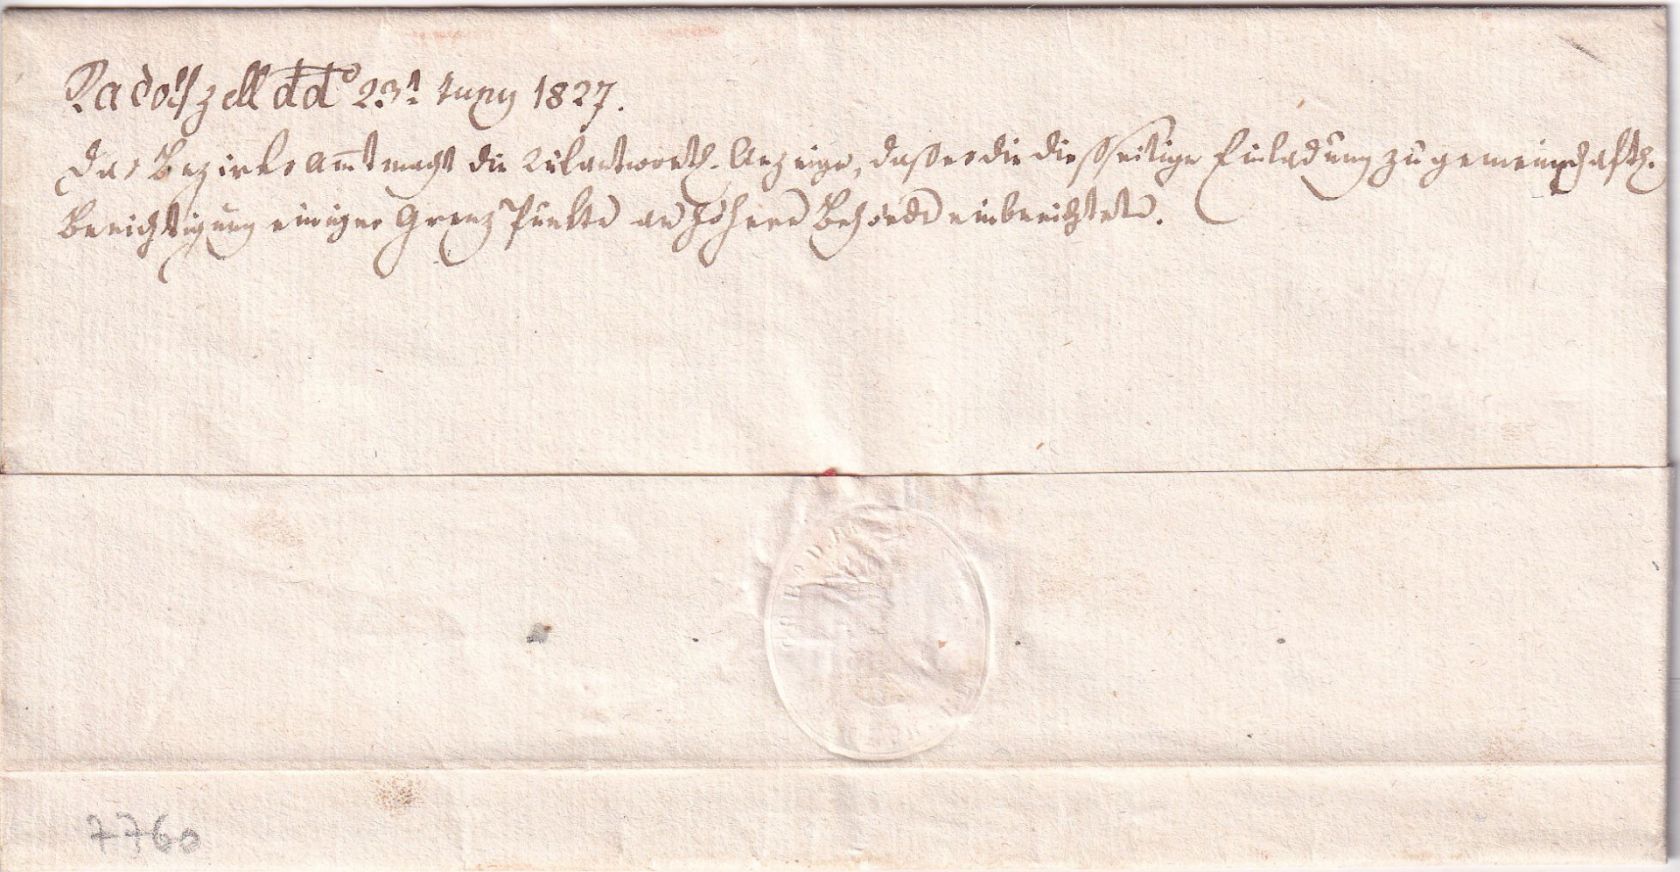 Radolfzell dd° 23t Juny 1827.
Das Bezirks Amt macht die Rükantwortl. Anzeige, daß es die diesseitige Einladung zu gemeinschaftl.
Berichtigung einiger Grenz Punkte an höhere Behörde einberichtete.
7760